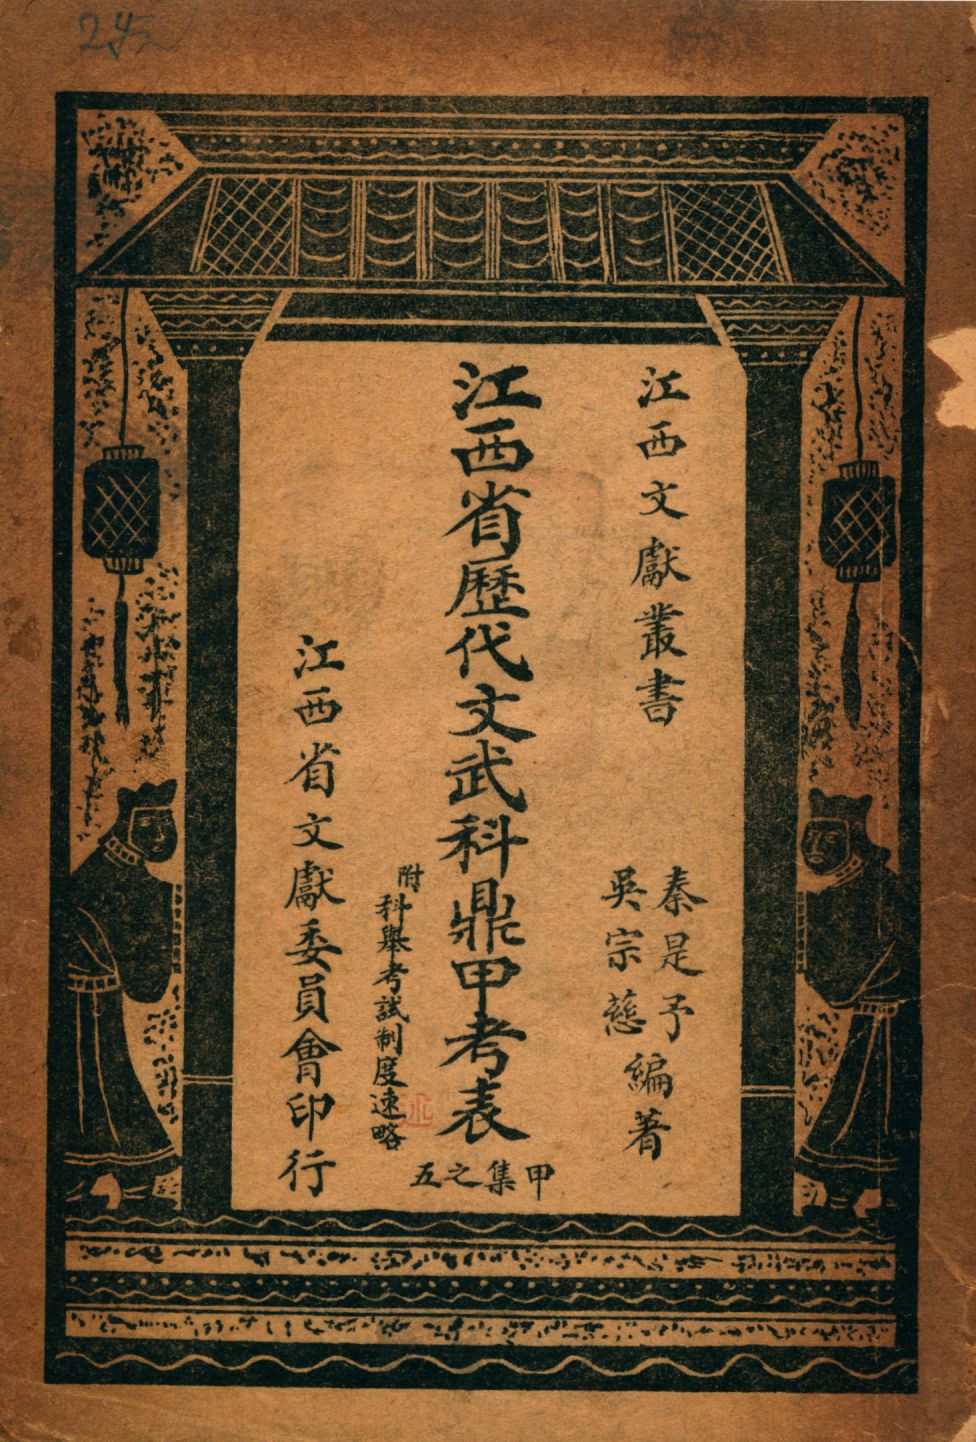 江西文獻叢書
秦是予
吳宗慈
編著
江西省歷代文武科鼎甲考表
甲集之五
附科舉考試制度速略
江西省文獻委員會印行